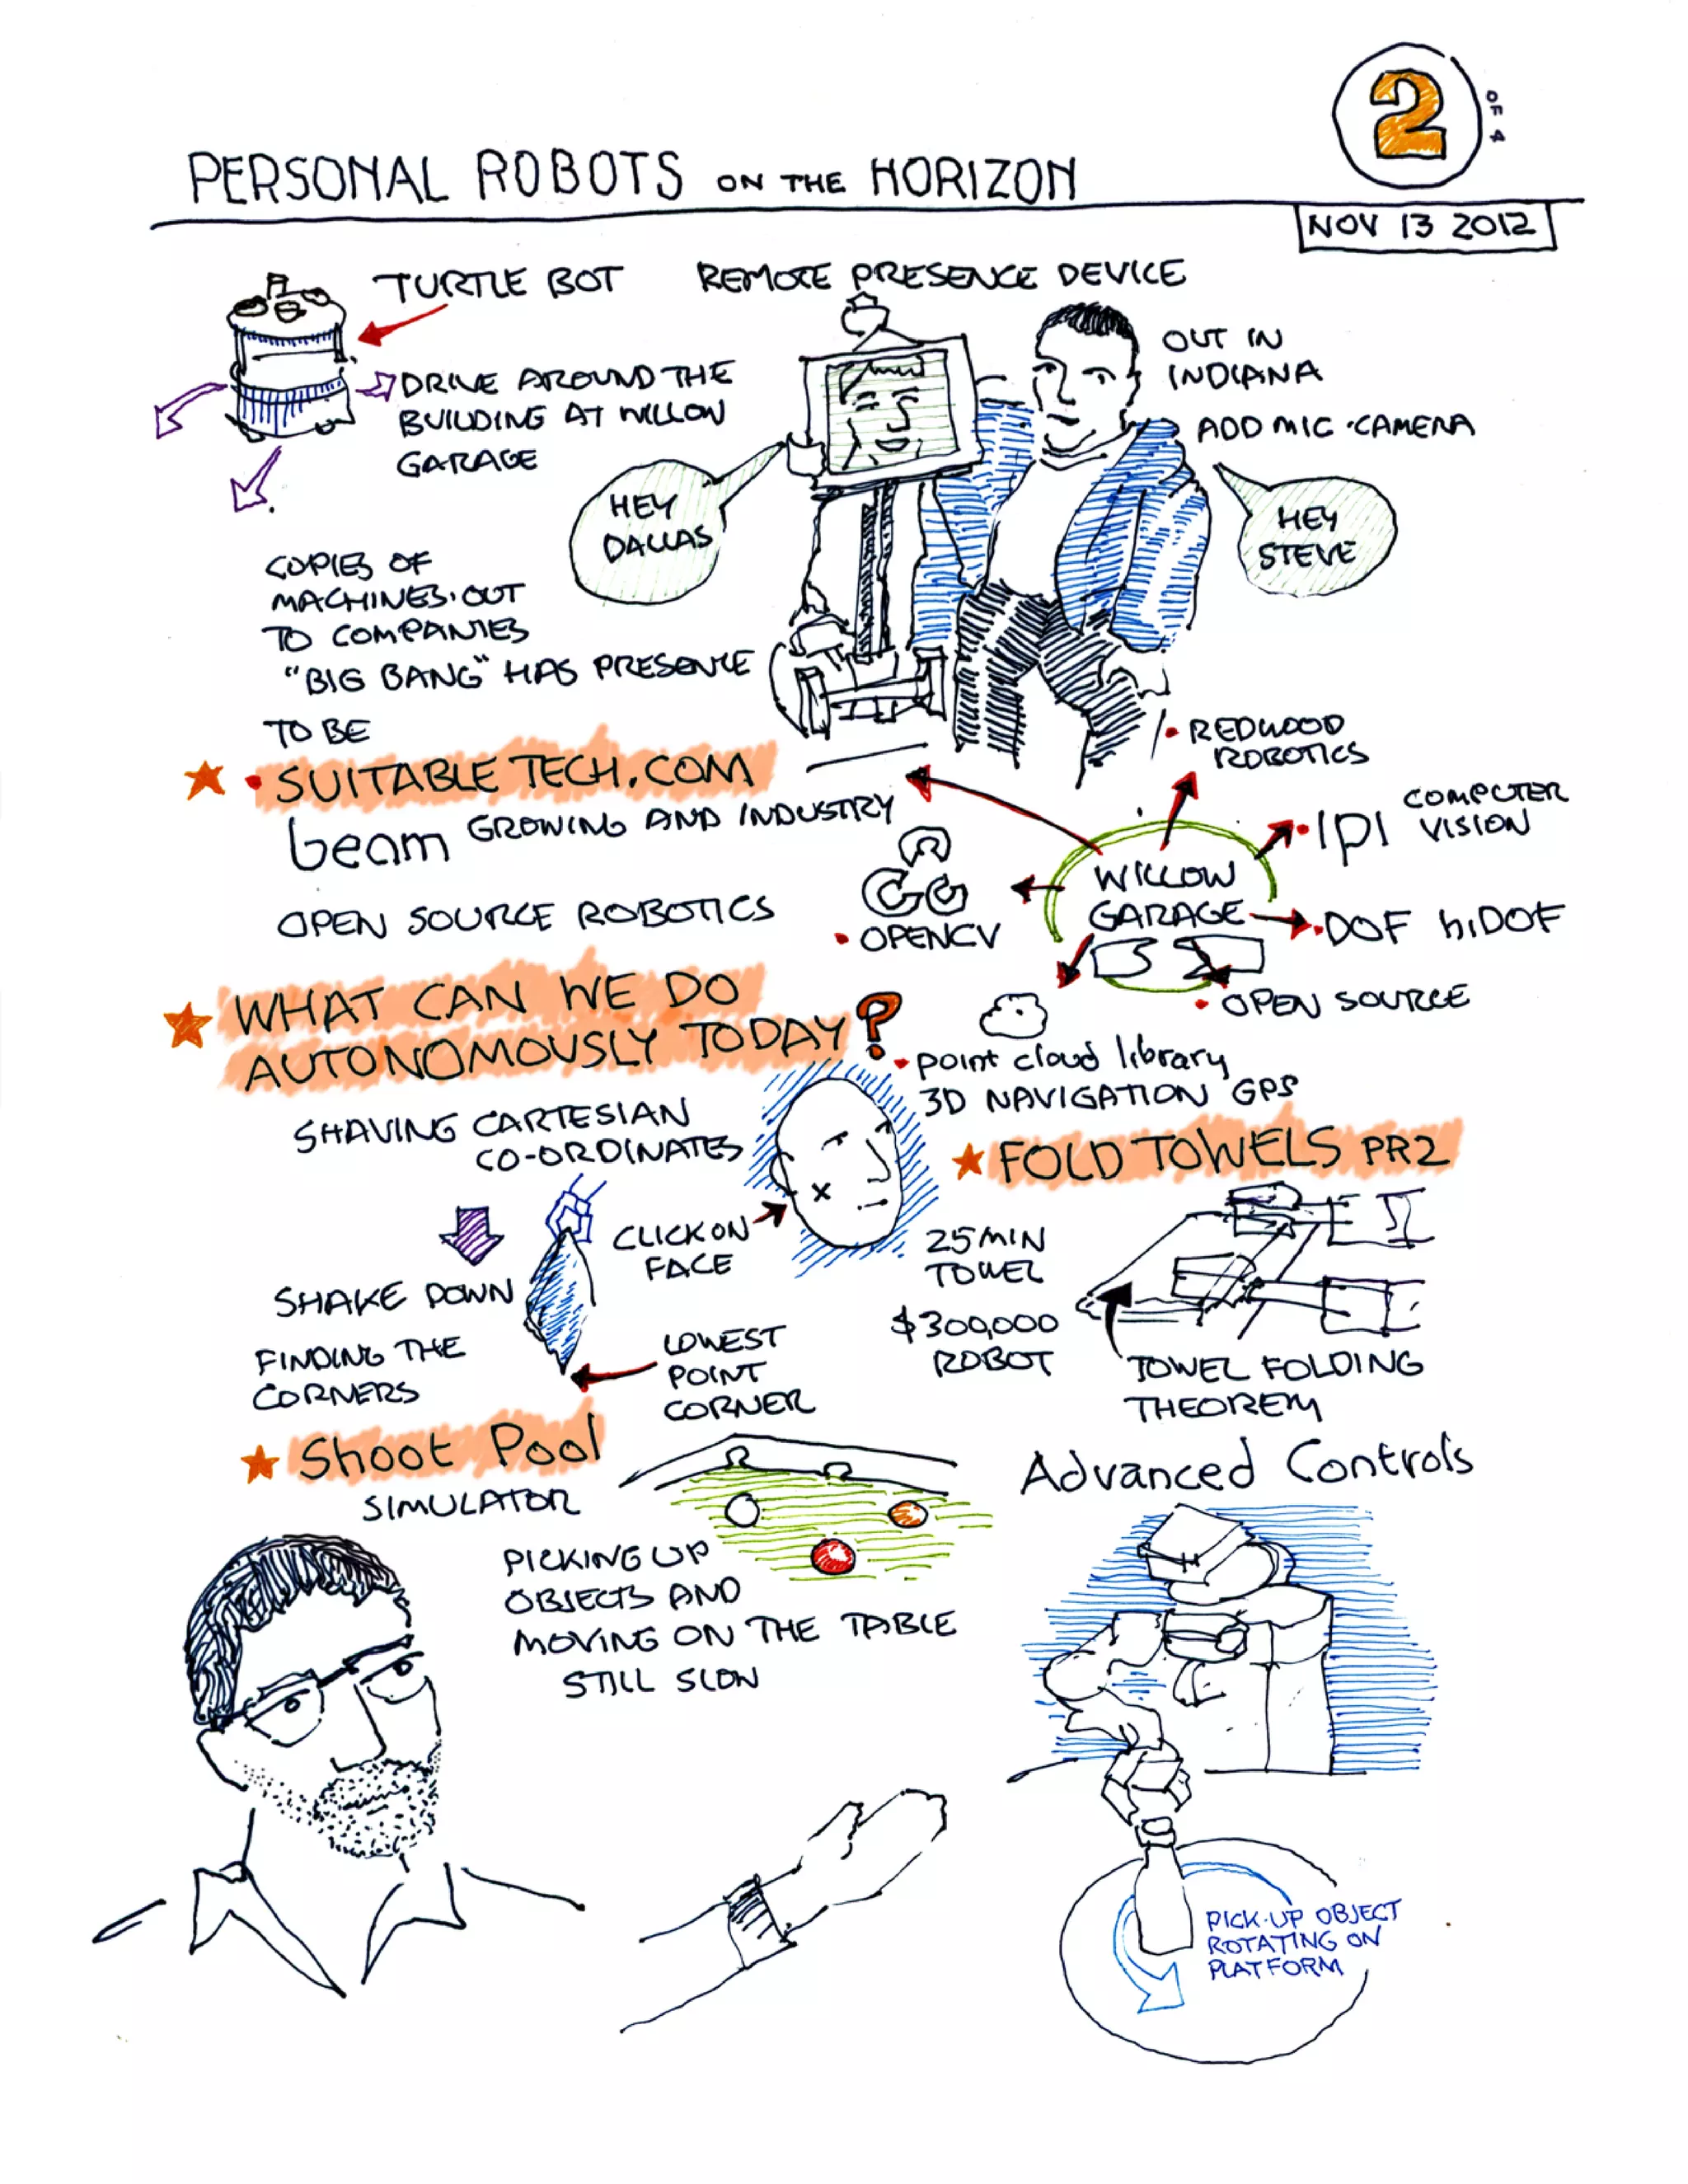 2 OF 4
PERSONAL ROBOTS ON THE HORIZON
NOV 13 2012
TURTLE BOT
DRIVE AROUND THE
BUILDING AT WILLOW
GARAGE
REMOTE PRESENCE DEVICE
OUT IN
INDIANA
ADD MIC · CAMERA
HEY
DALLAS
HEY
STEVE
COPIES OF
MACHINES · OUT
TO COMPANIES
"BIG BANG" HAS PRESENCE
TO BE
SUITABLE TECH.COM
beam GROWING AND INDUSTRY
OPEN SOURCE ROBOTICS
• REDWOOD
ROBOTICS
• IPI COMPUTER
VISION
WILLOW
GARAGE
• DOF hiDOF
• OPENCV
• OPEN SOURCE
• point cloud library
3D NAVIGATION GPS
WHAT CAN WE DO
AUTONOMOUSLY TODAY?
SHAVING CARTESIAN
CO-ORDINATES
CLICK ON
FACE
x
SHAKE DOWN
FINDING THE
CORNERS
LOWEST
POINT
CORNER
FOLD TOWELS PR2
25 MIN
TOWEL
$300,000
ROBOT
TOWEL FOLDING
THEOREM
Shoot Pool
SIMULATOR
PICKING UP
OBJECTS AND
MOVING ON THE TABLE
STILL SLOW
Advanced Controls
PICK-UP OBJECT
ROTATING ON
PLATFORM